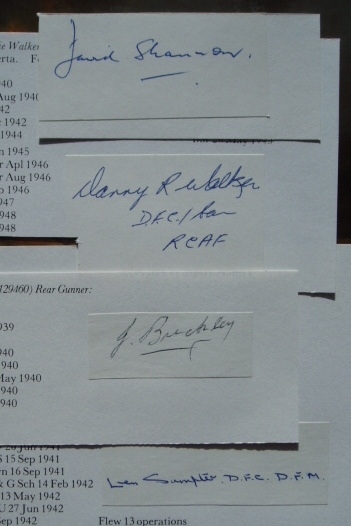 ie Walker
erta. F
940
Aug 1940
42
t 1942
1944
n 1945
r Apl 1946
r Aug 1946
b 1946
947
948
948
David Shannon.
Danny R Walker
D.F.C./Bar
RCAF
129460) Rear Gunner:
939
940
940
May 1940
940
940
J. Buckley
S 15 Sep 1941
rn 16 Sep 1941
& G Sch 14 Feb 1942
13 May 1942
U 27 Jun 1942
Sep 1942
Len Sumpter. D.F.C. D.F.M.
Flew 13 operations